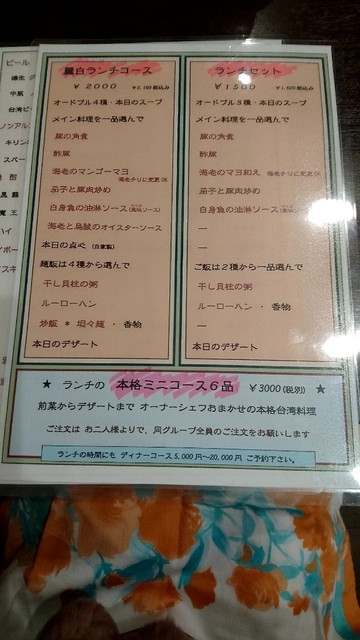 ビール
台湾ビー
ノンアル
キリン
スペー
魔王
ハイ
麗白ランチコース
￥2000 ￥2,160税込み
オードブル4種・本日のスープ
メイン料理を一品選んで
豚の角煮
酢豚
海老のマンゴーマヨ
海老チリに変更OK
茄子と豚肉炒め
白身魚の油淋ソース
海老と烏賊のオイスターソース
本日の点心（自家製）
麺飯は4種から選んで
干し貝柱の粥
ルーローハン
炒飯 * 坦々麺・香物
本日のデザート
ランチセット
￥1500 ￥1,620税込み
オードブル3種・本日のスープ
メイン料理を一品選んで
豚の角煮
酢豚
海老のマヨ和え 海老チリに変更OK
茄子と豚肉炒め
白身魚の油淋ソース
—
—
ご飯は2種から一品選んで
干し貝柱の粥
ルーローハン ・ 香物
—
本日のデザート
★ ランチの 本格ミニコース6品 ￥3000(税別) ★
前菜からデザートまで オーナーシェフおまかせの本格台湾料理
ご注文は お二人様よりで、同グループ全員のご注文をお願いします
ランチの時間にも ディナーコース5,000円〜20,000円 ご予約下さい。